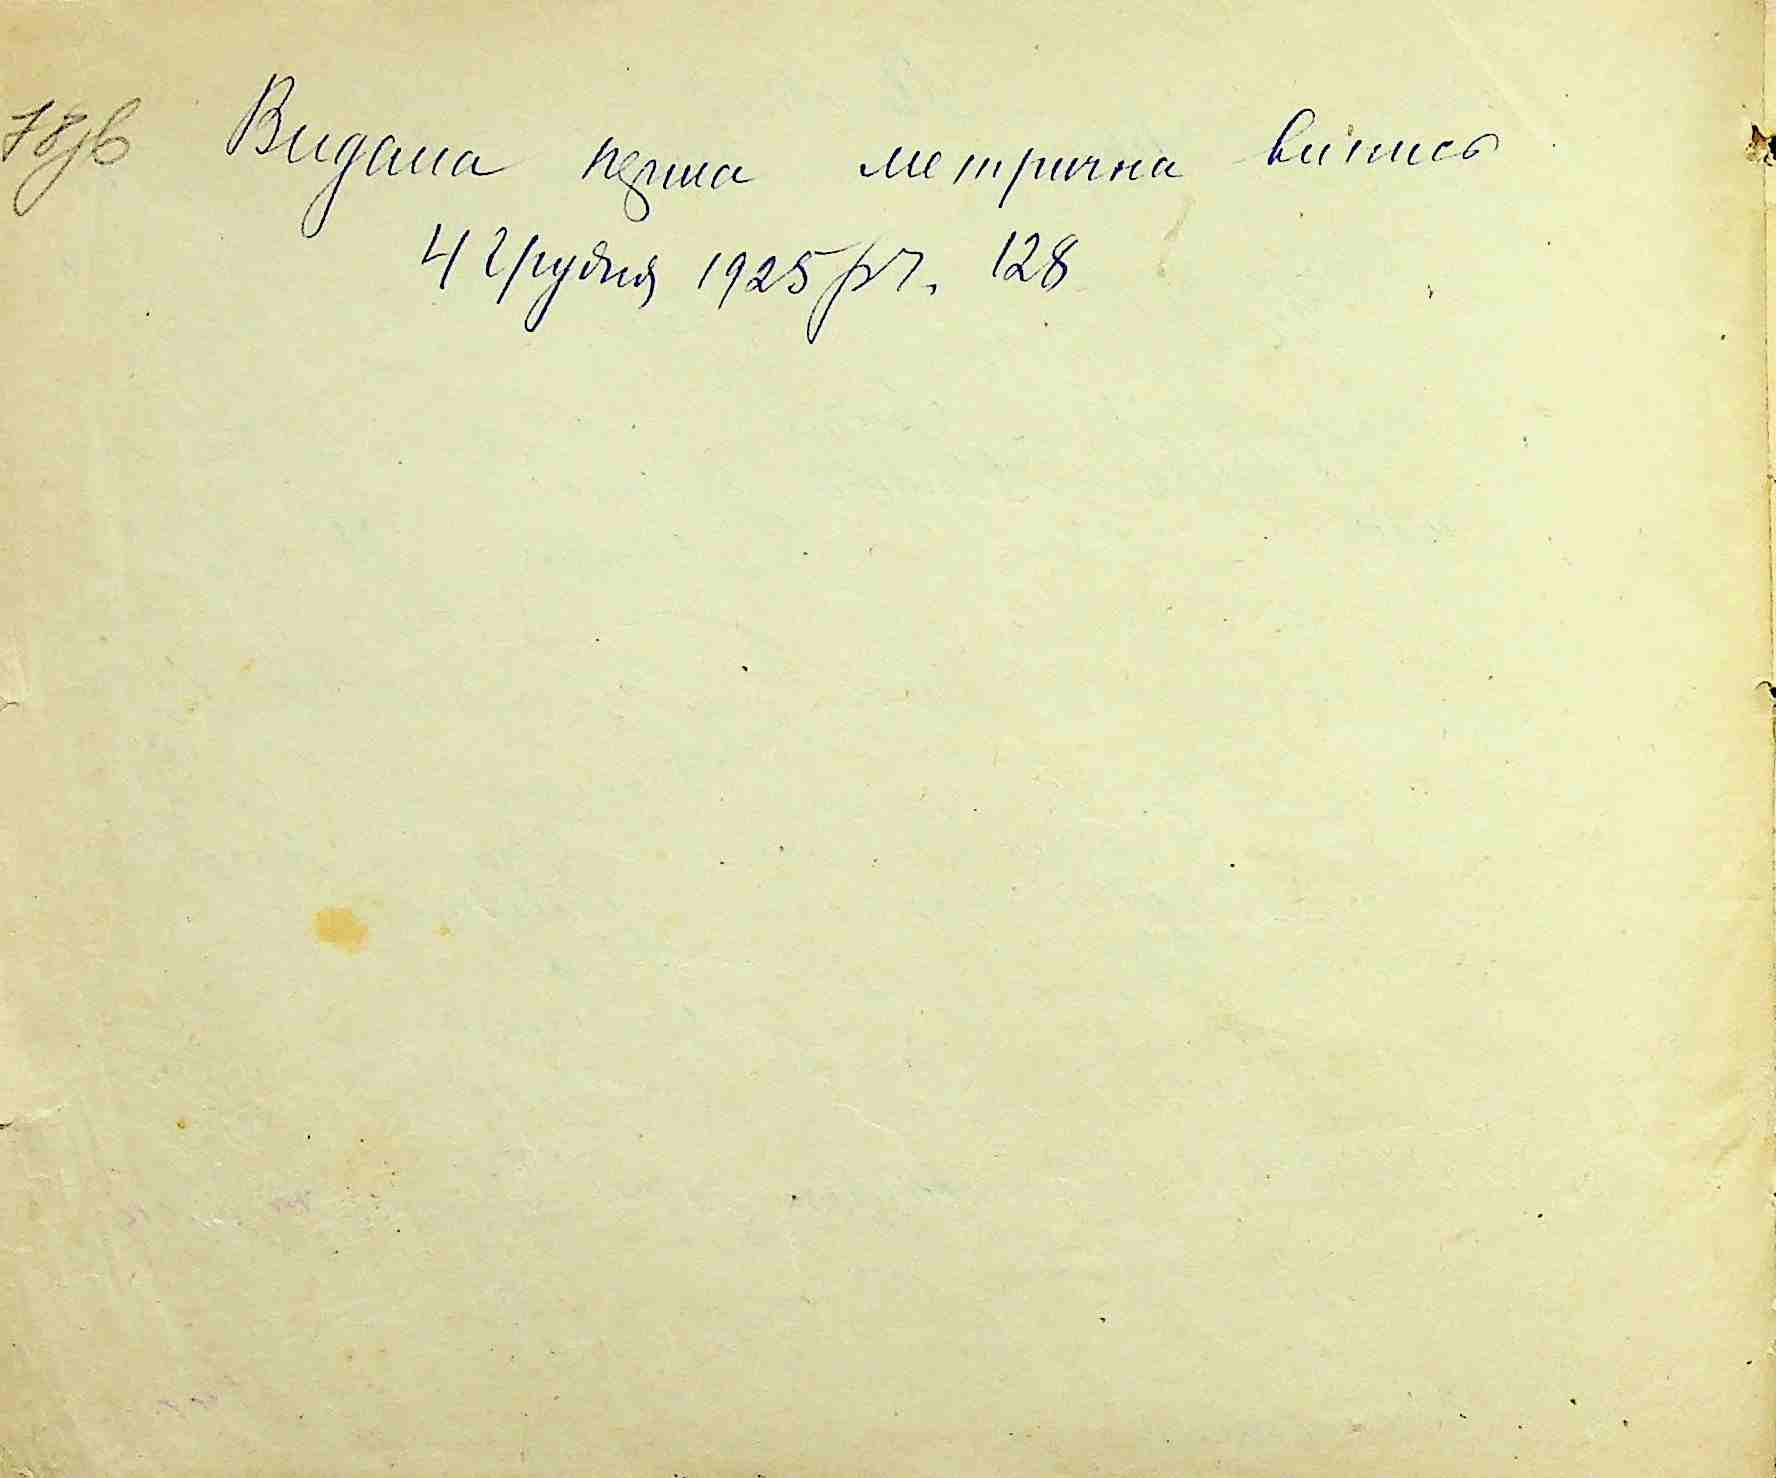 78зв Видана перша метрична випись
4 Грудня 1925 р ч. 128